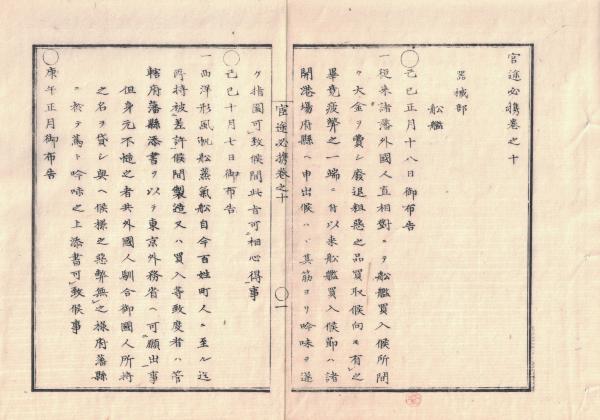 官途必携巻之十
器械部
船艦
〇己巳正月十八日御布告
一従来諸藩外國人直相對ニテ船艦買入候所間
々大金ヲ費シ廢退粗惡之品買取候向モ有之
畢竟疲弊之一端ニ付以来船艦買入候節ハ諸
開港場府縣ヘ申出候ハヽ其筋ヨリ吟味ヲ遂
官途必携巻之十
〇一
ケ指圖可致候間此旨可相心得事
〇己巳十月七日御布告
一西洋形風帆船蒸氣船自今百姓町人ニ至ル迄
所持被差許候間製造又ハ買入等致度者ハ管
轄府藩縣添書ヲ以テ東京外務省ヘ可願出事
但身元不慥之者共外國人馴合御國人所持
之名ヲ貸シ與ヘ候様之惡弊無之様府藩縣
ニ於テ篤ト吟味之上添書可致候事
〇庚午正月御布告